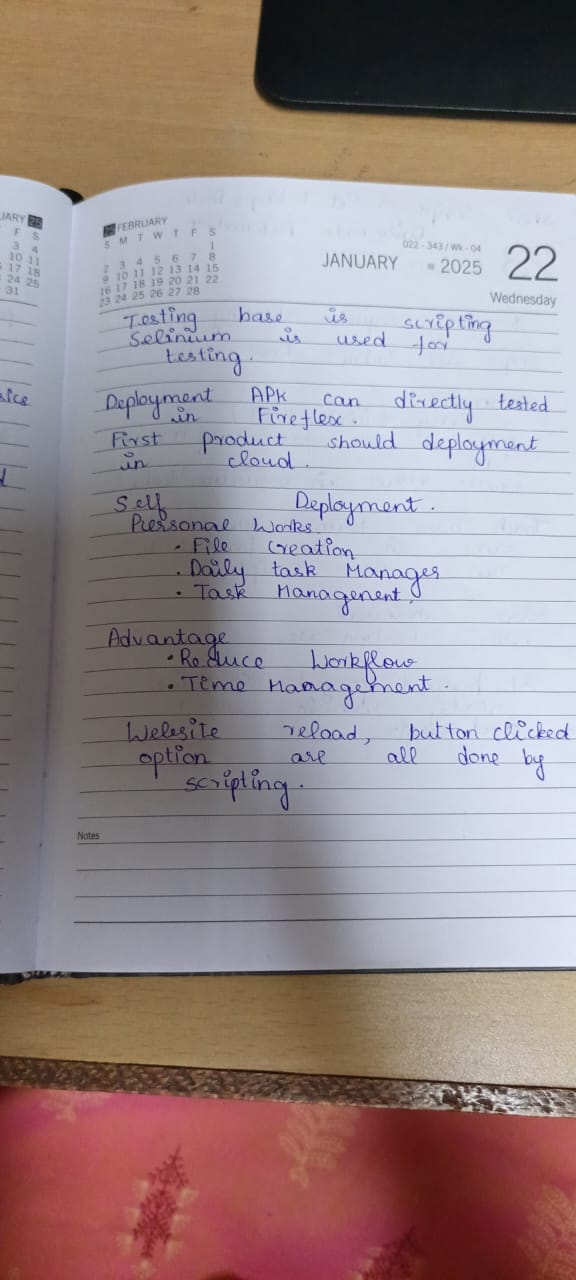 JARY 25
F S
3 4
10 11
17 18
24 25
31
sics
FEBRUARY
S M T W T F S
1
2 3 4 5 6 7 8
9 10 11 12 13 14 15
16 17 18 19 20 21 22
23 24 25 26 27 28
022 - 343 / Wk - 04
JANUARY 2025 22
Wednesday
Testing base is scripting
Selinium is used for
testing.
Deployment APK can directly tested
in Fireflex.
First product should deployment
in cloud.
Self Deployment.
Piersonal Works
• File Creation
• Daily task Manager
• Task Managenent.
Advantage
• Reduce Workflow
• Time Management.
Website reload, button clicked
option are all done by
scripting.
Notes